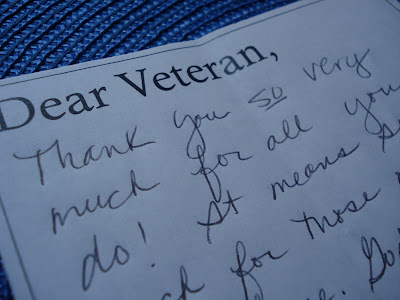 Dear Veteran,
Thank you so very
much for all you
do! It means
for those